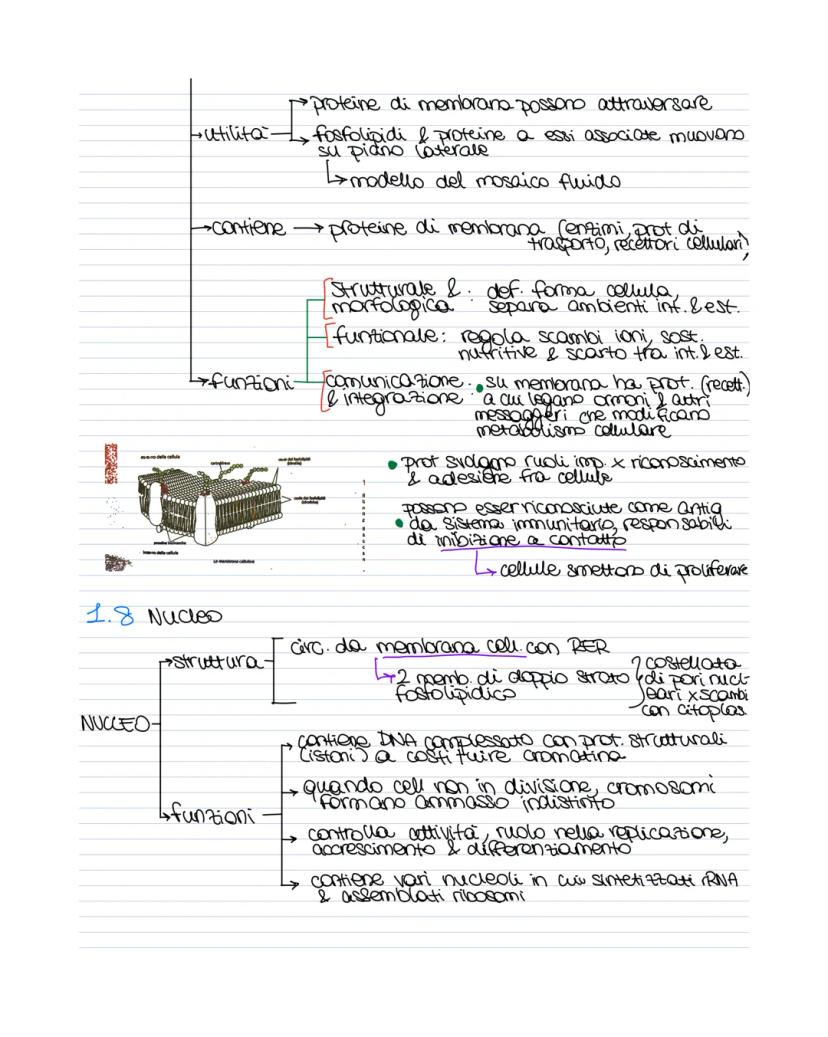 → proteine di membrana possono attraversare
→ utilità
→ fosfolipidi & proteine a essi associate muovono
su piano laterale
→ modello del mosaico fluido
→ contiene → proteine di membrana (enzimi, prot di
trasporto, recettori cellulari)
strutturale & : def. forma cellula,
morfologica separa ambienti int. & est.
funzionale: regola scambi ioni, sost.
nutritive & scarto tra int. & est.
→ funzioni
comunicazione : • su membrana ha prot. (recett.)
& integrazione a cui legano ormoni & altri
messaggeri che modificano
metabolismo cellulare
• prot svolgono ruoli imp. x riconoscimento
& adesione fra cellule
possono esser riconosciute come antig
• da sistema immunitario, responsabili
di inibizione a contatto
→ cellule smettono di proliferare
esterno della cellula
interno della cellula
La membrana cellulare
1.8 Nucleo
NUCLEO
→ struttura
circ. da membrana cell. con RER
→ 2 memb. di doppio strato
fosfolipidico
costellata
di pori nucl-
eari x scambi
con citoplas
→ funzioni
→ contiene DNA complessato con prot. strutturali
(istoni) a costituire cromatina
→ quando cell non in divisione, cromosomi
formano ammasso indistinto
→ controlla attività, ruolo nella replicazione,
accrescimento & differenziamento
→ contiene vari nucleoli in cui sintetizzati rRNA
& assemblati ribosomi